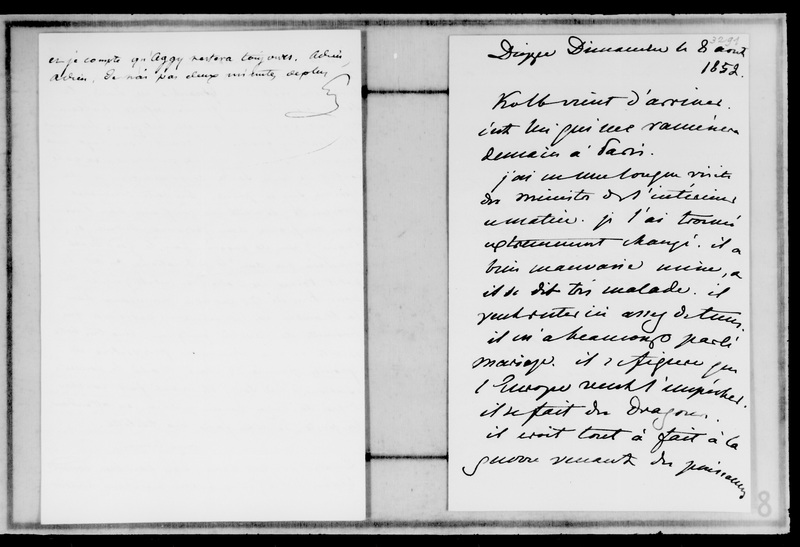 et je compte qu'Aggy restera toujours. Adieu,
adieu, je n'ai pas deux minutes de plus
Dieppe Dimanche le 8 août
1852.
Kolb vient d'arriver.
c'est lui qui me ramènera
demain à Paris.
j'ai eu une longue visite
du ministre de l'intérieur
ce matin. je l'ai trouvé
extrêmement changé. il a
bien mauvaise mine, &
il se dit très malade. il
veut rester ici assez de tems.
il m'a beaucoup parlé
mariage. il se figure que
l'Europe veut l'empêcher.
il se fait des Dragons.
il croit tout à fait à la
guerre venant des puissances
8